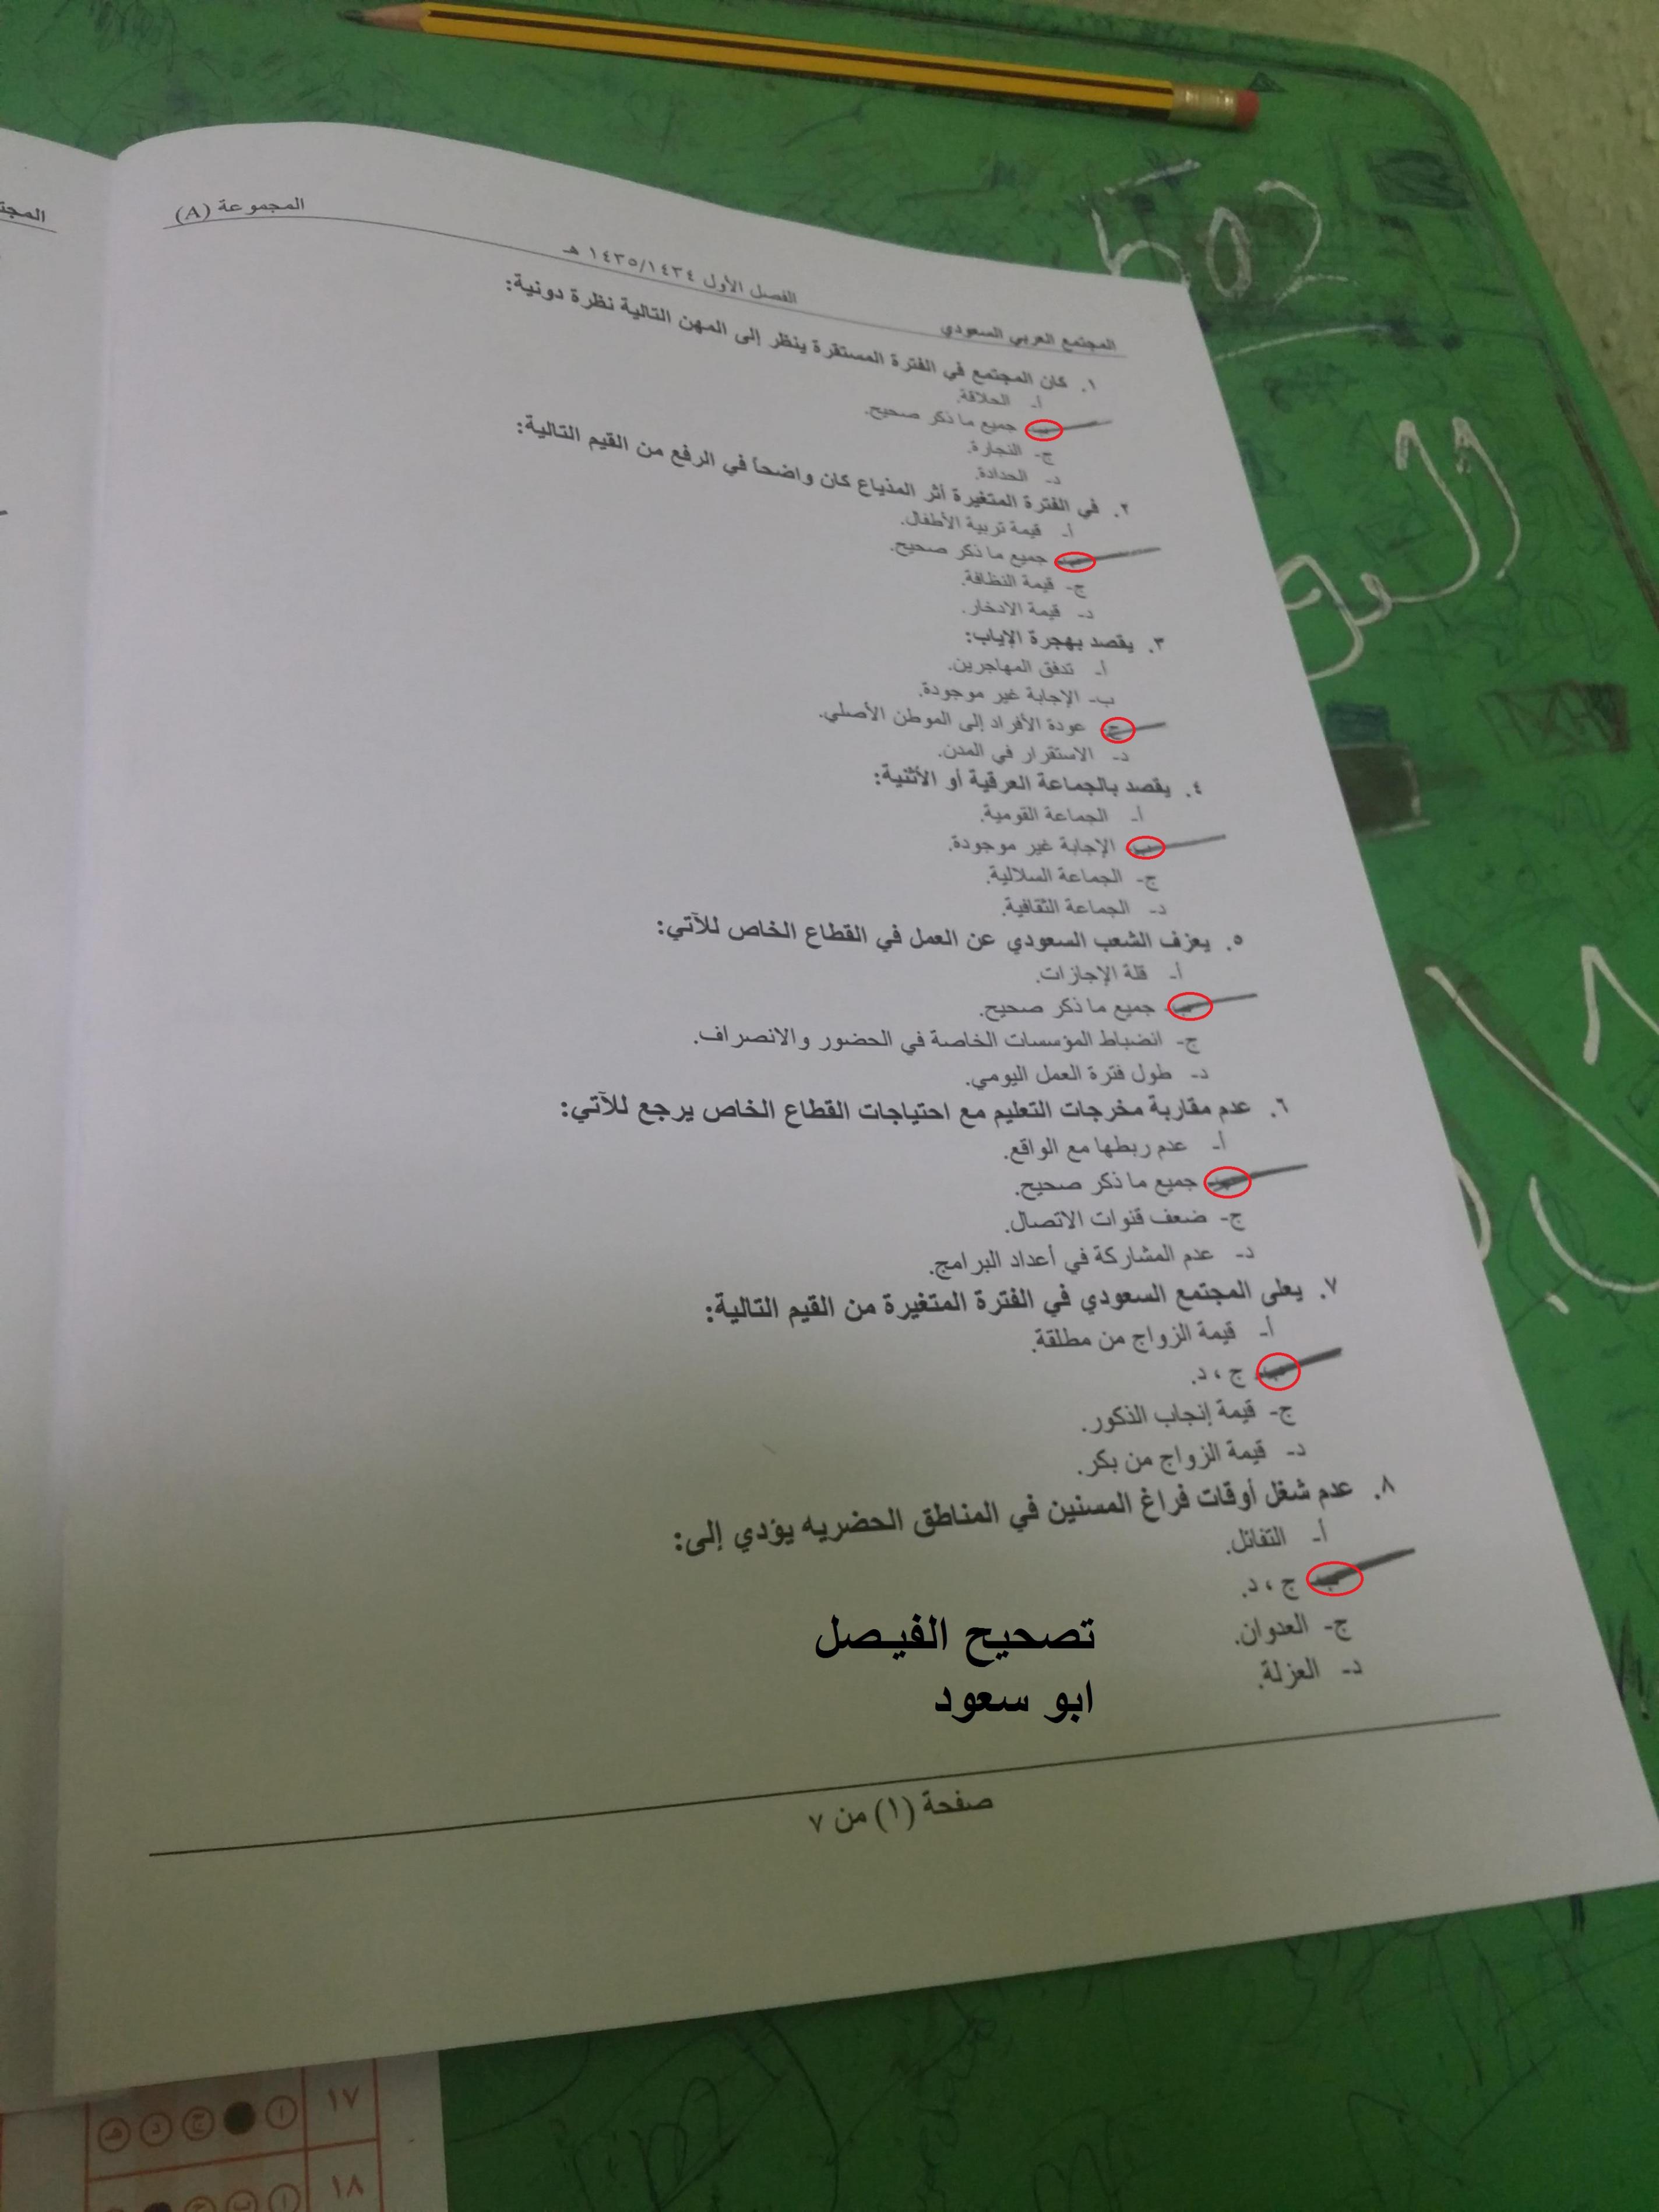 المجتمع العربي السعودي
الفصل الأول ١٤٣٥/١٤٣٤ هـ
المجموعة (A)
١. كان المجتمع في الفترة المستقرة ينظر إلى المهن التالية نظرة دونية:
أ- الحلاقة.
جميع ما ذكر صحيح.
ج- النجارة.
د- الحدادة.
٢. في الفترة المتغيرة أثر المذياع كان واضحاً في الرفع من القيم التالية:
أ- قيمة تربية الأطفال.
جميع ما ذكر صحيح.
ج- قيمة النظافة.
د- قيمة الادخار.
٣. يقصد بهجرة الإياب:
أ- تدفق المهاجرين.
ب- الإجابة غير موجودة.
ج- عودة الأفراد إلى الموطن الأصلي.
د- الاستقرار في المدن.
٤. يقصد بالجماعة العرقية أو الأثنية:
أ- الجماعة القومية.
ب- الإجابة غير موجودة.
ج- الجماعة السلالية.
د- الجماعة الثقافية.
٥. يعزف الشعب السعودي عن العمل في القطاع الخاص للآتي:
أ- قلة الإجازات.
ب- جميع ما ذكر صحيح.
ج- انضباط المؤسسات الخاصة في الحضور والانصراف.
د- طول فترة العمل اليومي.
٦. عدم مقاربة مخرجات التعليم مع احتياجات القطاع الخاص يرجع للآتي:
أ- عدم ربطها مع الواقع.
جميع ما ذكر صحيح.
ج- ضعف قنوات الاتصال.
د- عدم المشاركة في أعداد البرامج.
٧. يعلى المجتمع السعودي في الفترة المتغيرة من القيم التالية:
أ- قيمة الزواج من مطلقة.
ب- ج ، د.
ج- قيمة إنجاب الذكور.
د- قيمة الزواج من بكر.
٨. عدم شغل أوقات فراغ المسنين في المناطق الحضريه يؤدي إلى:
أ- التفائل.
ب- ج ، د.
ج- العدوان.
د- العزلة.
تصحيح الفيصل
ابو سعود
صفحة (١) من ٧
١٧ ا ج د هـ
١٨ ا ب ج
502